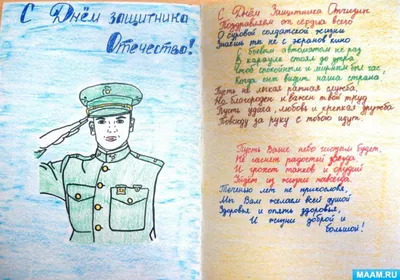 С Днём защитника
Отечества!
С Днём Защитника Отчизны
Поздравляем от сердца всего
О суровой солдатской жизни
Знаешь ты не с экранов кино
С боевым автоматом не раз
В карауле стоял до утра,
Чтоб спокойным и мирным был час,
Когда сны видит наша страна,
Пусть не легка ратная служба,
Но благороден и важен твой труд
Пусть удача, любовь и крепкая дружба
Повсюду за руку с тобою идут.
Пусть Ваше небо чистым будет,
Не гаснет радостей звезда,
И грохот танков и орудий
Уйдет из жизни навсегда.
Точно лет не приколова,
Мы Вам желаем всей душой
Здоровья и опять здоровья,
И жизни доброй и
большой!
MAAM.RU